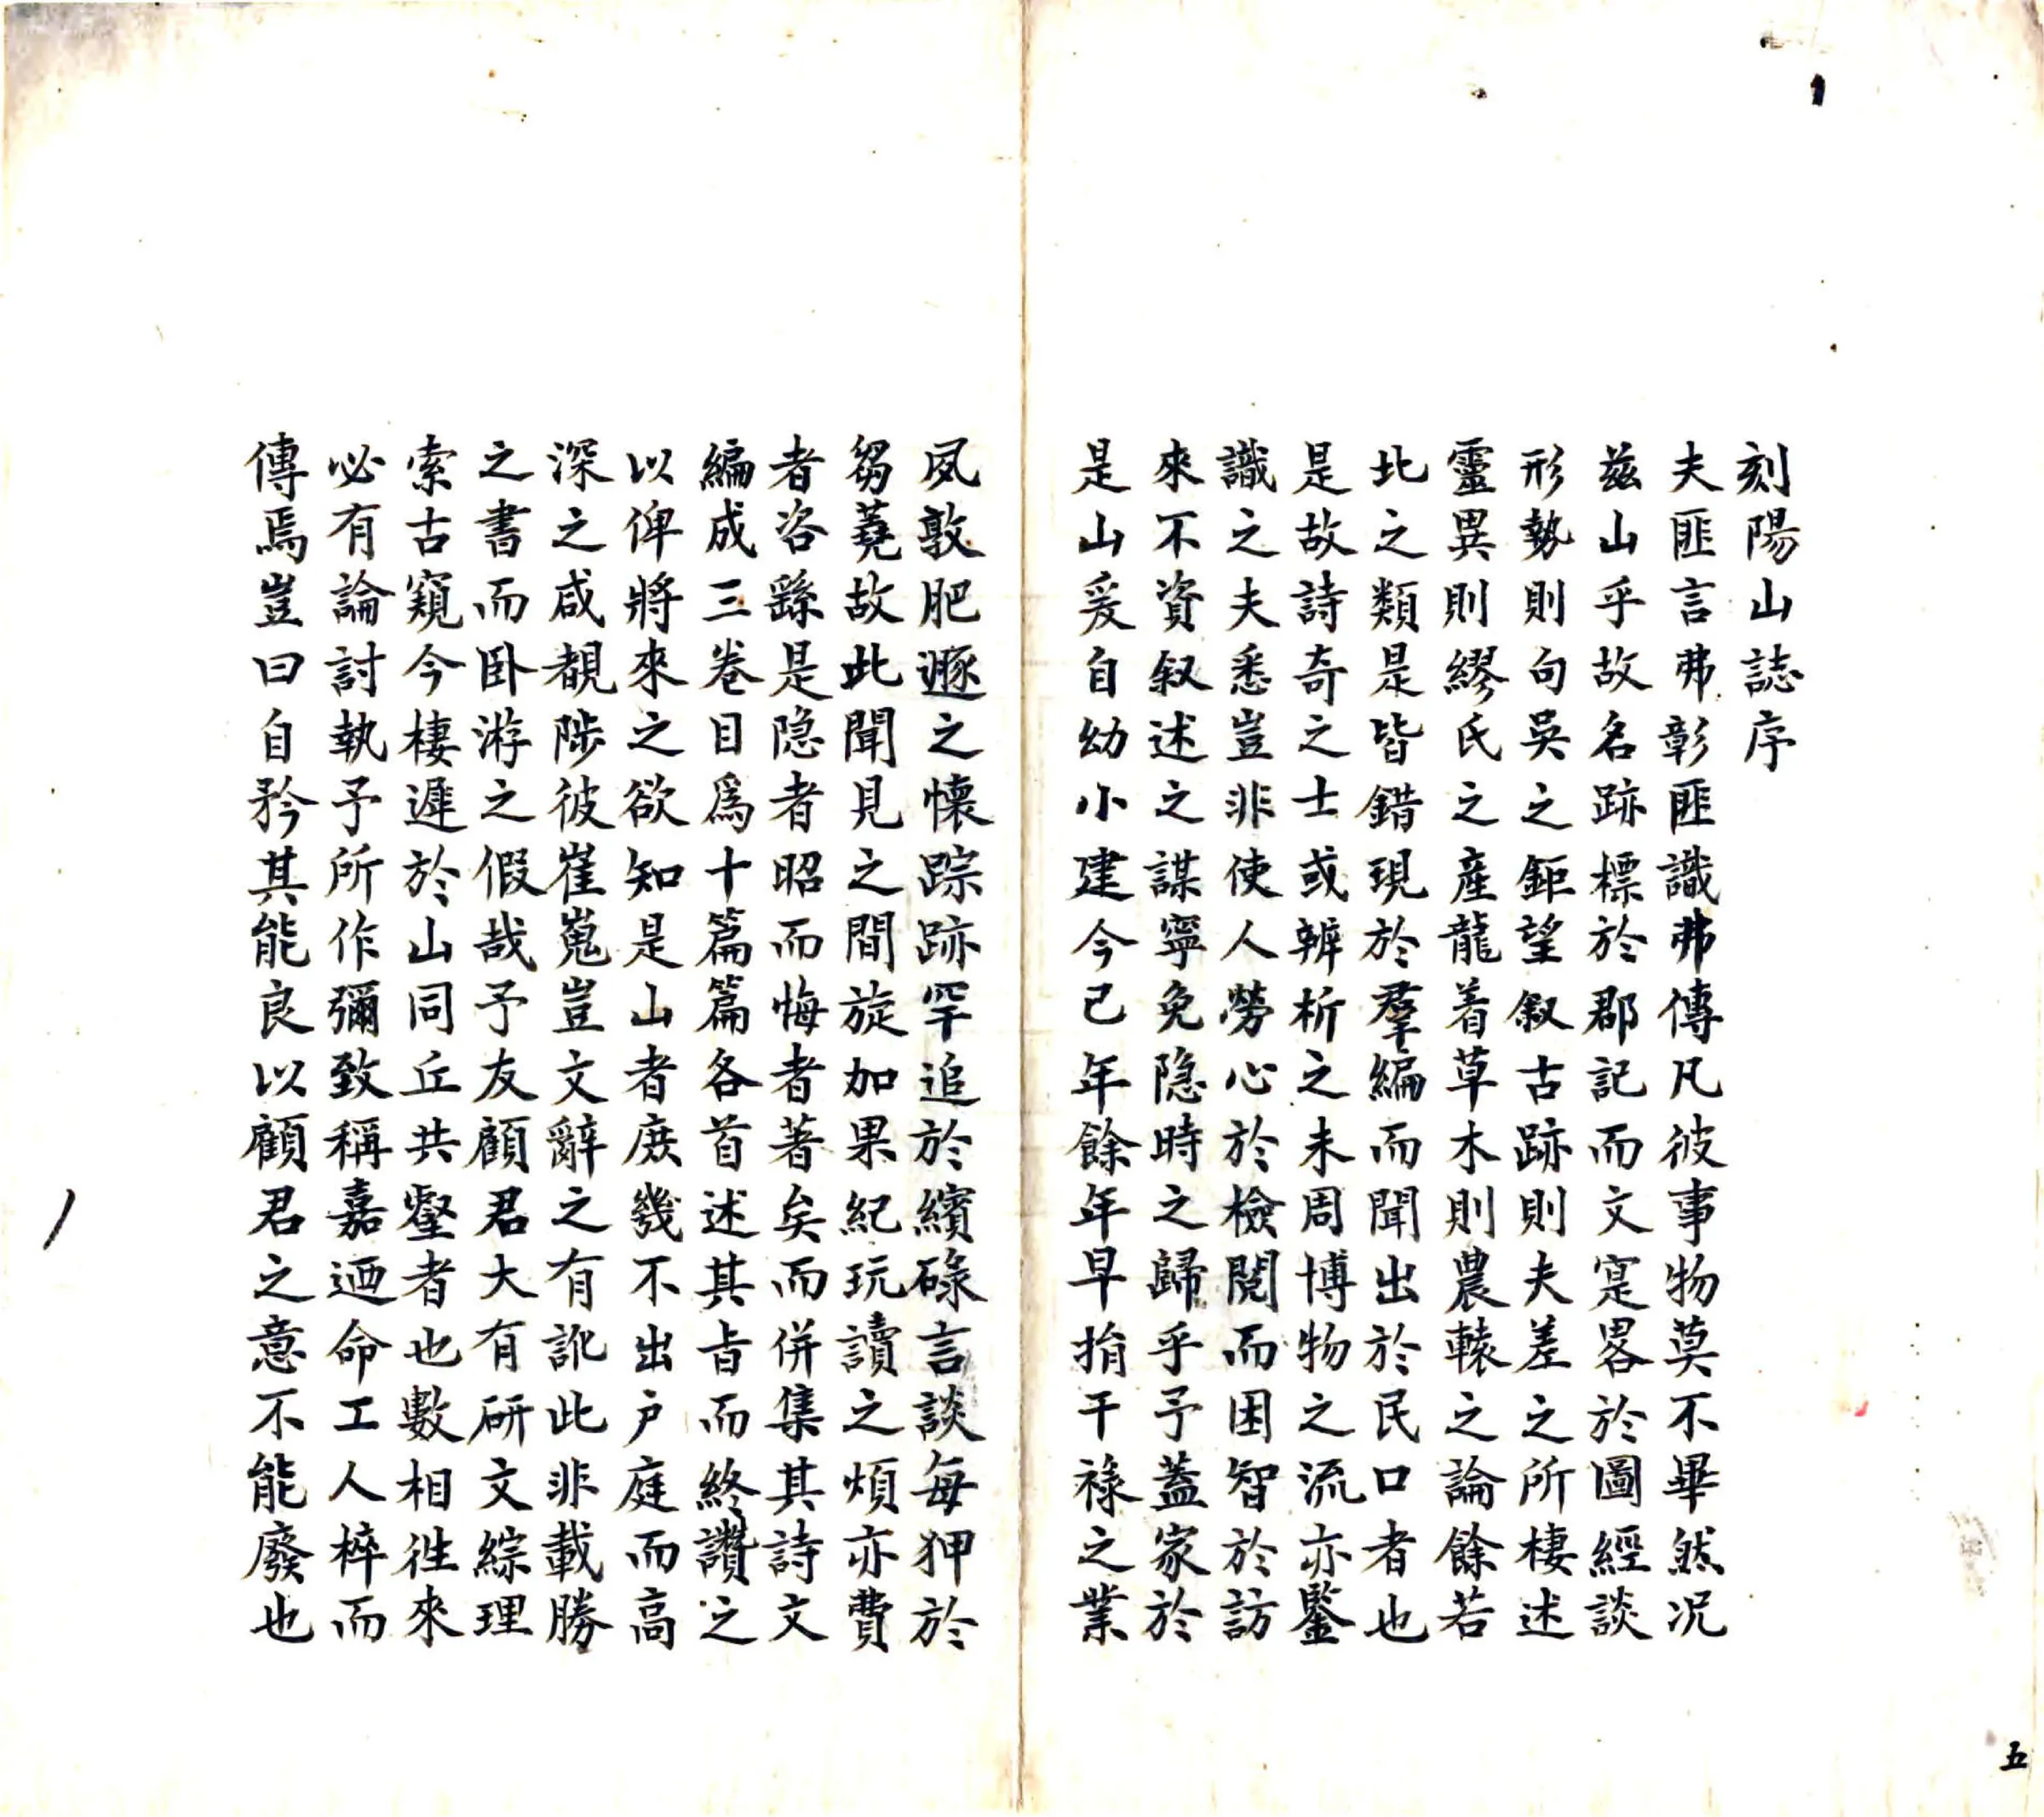 刻陽山誌序
夫匪言弗彰匪識弗傳凡彼事物莫不畢然况
兹山乎故名跡標於郡記而文寔畧於圖經談
形勢則句吳之鉅望叙古跡則夫差之所棲述
靈異則繆氏之產龍着草木則農轅之論餘若
此之類是皆錯現於羣編而聞出於民口者也
是故詩奇之士或辨析之未周博物之流亦鑒
識之夫悉豈非使人勞心於檢閱而困智於訪
來不資叙述之謀寧免隐時之歸乎予蓋家於
是山爰自幼小建今己年餘年早捐干祿之業
夙敦肥遯之懷踪跡罕追於繽碌言談每狎於
芻蕘故此聞見之間旋加果紀玩讀之煩亦費
者咨繇是隐者昭而悔者著矣而併集其詩文
編成三卷目爲十篇篇各首述其旨而終讚之
以俾將來之欲知是山者庶幾不出户庭而高
深之咸覩陟彼崔嵬豈文辭之有訛此非載勝
之書而卧游之假哉予友顧君大有研文綜理
索古窺今棲遲於山同丘共壑者也數相徃來
必有論討執予所作彌致稱嘉迺命工人梓而
傳焉豈曰自矜其能良以顧君之意不能廢也
五